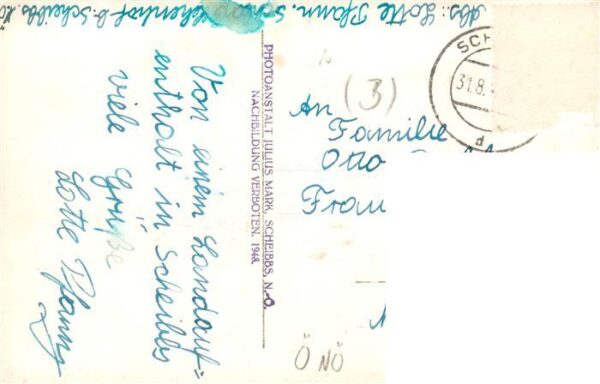 Abs: Lotte Pfann. b. Scheibbs
Von einem Landauf=
enthalt in Scheibbs
viele Grüße
Lotte Pfann
PHOTOANSTALT JULIUS MARK, SCHEIBBS, N.-Ö.
NACHBILDUNG VERBOTEN. 1948.
SCH
31.8.
P
(3)
An
Familie
Otto
Frau
Ö NÖ